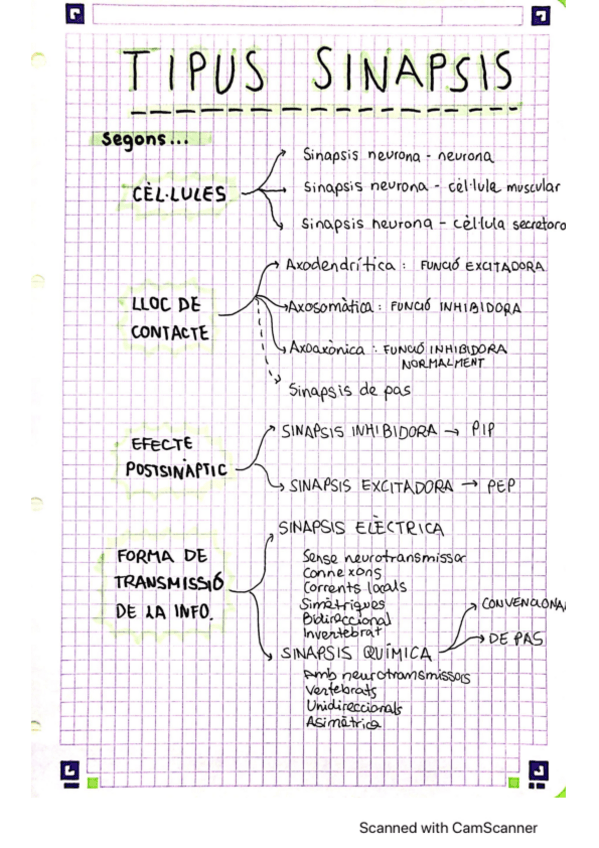 TIPUS SINAPSIS
Segons...
CÈL·LULES
Sinapsis neurona - neurona
Sinapsis neurona - cèl·lula muscular
Sinapsis neurona - cèl·lula secretora
LLOC DE
CONTACTE
Axodendrítica : FUNCIÓ EXCITADORA
Axosomàtica : FUNCIÓ INHIBIDORA
Axoaxònica : FUNCIÓ INHIBIDORA
NORMALMENT
Sinapsis de pas
EFECTE
POSTSINÀPTIC
SINAPSIS INHIBIDORA → PIP
SINAPSIS EXCITADORA → PEP
FORMA DE
TRANSMISSIÓ
DE LA INFO.
SINAPSIS ELÈCTRICA
Sense neurotransmissor
Connexons
Corrents locals
Simètriques
Bidireccional
Invertebrat
SINAPSIS QUÍMICA
CONVENCIONA
DE PAS
Amb neurotransmissors
Vertebrats
Unidireccionals
Asimètrica
Scanned with CamScanner